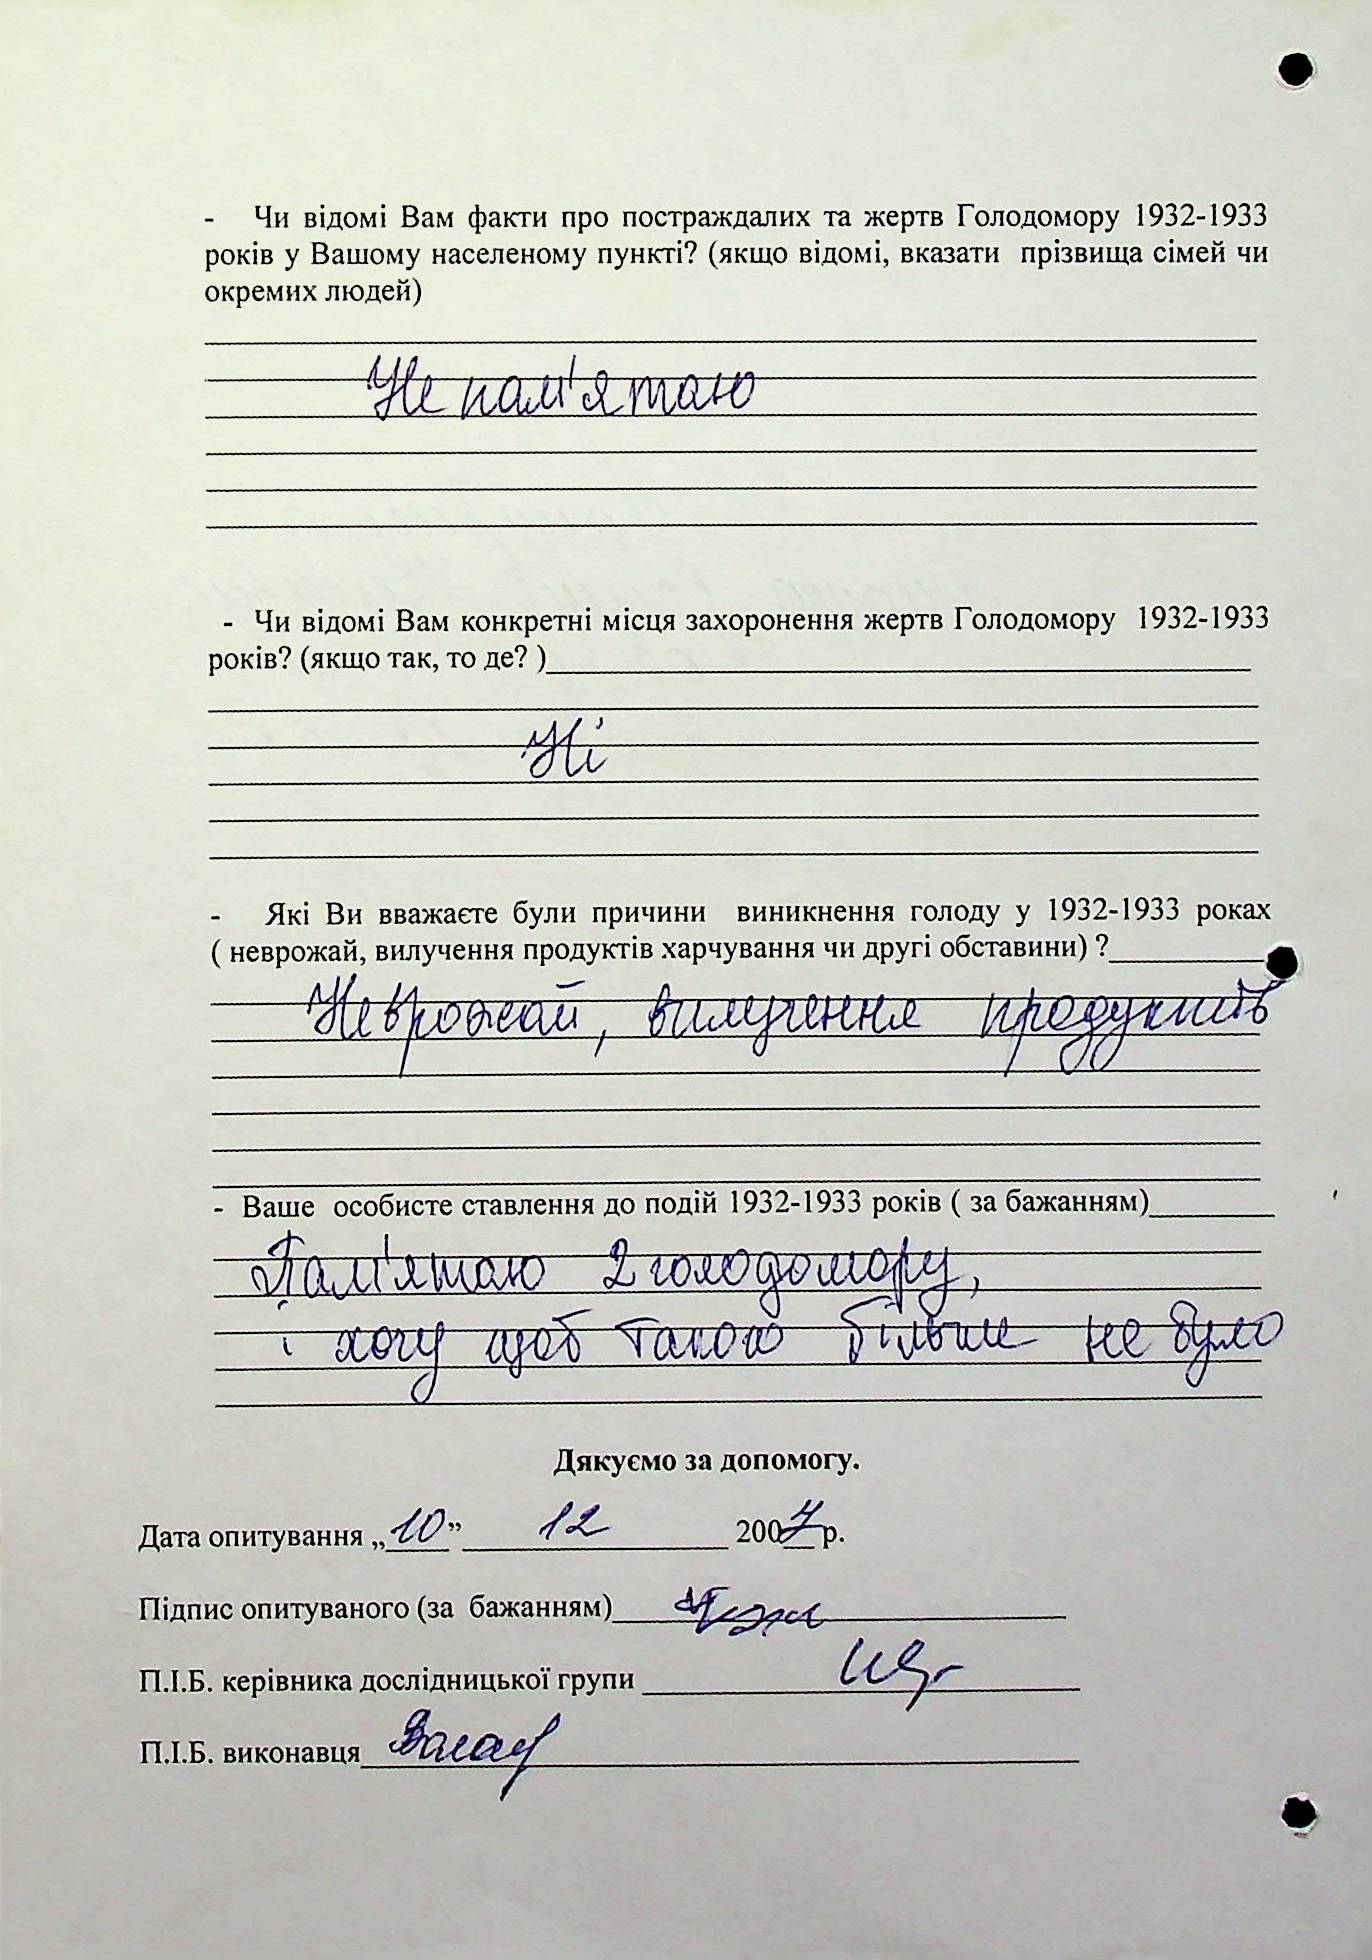 - Чи відомі Вам факти про постраждалих та жертв Голодомору 1932-1933
років у Вашому населеному пункті? (якщо відомі, вказати прізвища сімей чи
окремих людей)
Не пам'ятаю
- Чи відомі Вам конкретні місця захоронення жертв Голодомору 1932-1933
років? (якщо так, то де? )
Ні
- Які Ви вважаєте були причини виникнення голоду у 1932-1933 роках
( неврожай, вилучення продуктів харчування чи другі обставини) ?
Неврожай, вилучення продуктів
- Ваше особисте ставлення до подій 1932-1933 років ( за бажанням)
Пам'ятаю 2 голодомору,
і хочу щоб такого більше не було
Дякуємо за допомогу.
Дата опитування „10” 12 2007 р.
Підпис опитуваного (за бажанням)
П.І.Б. керівника дослідницької групи
П.І.Б. виконавця